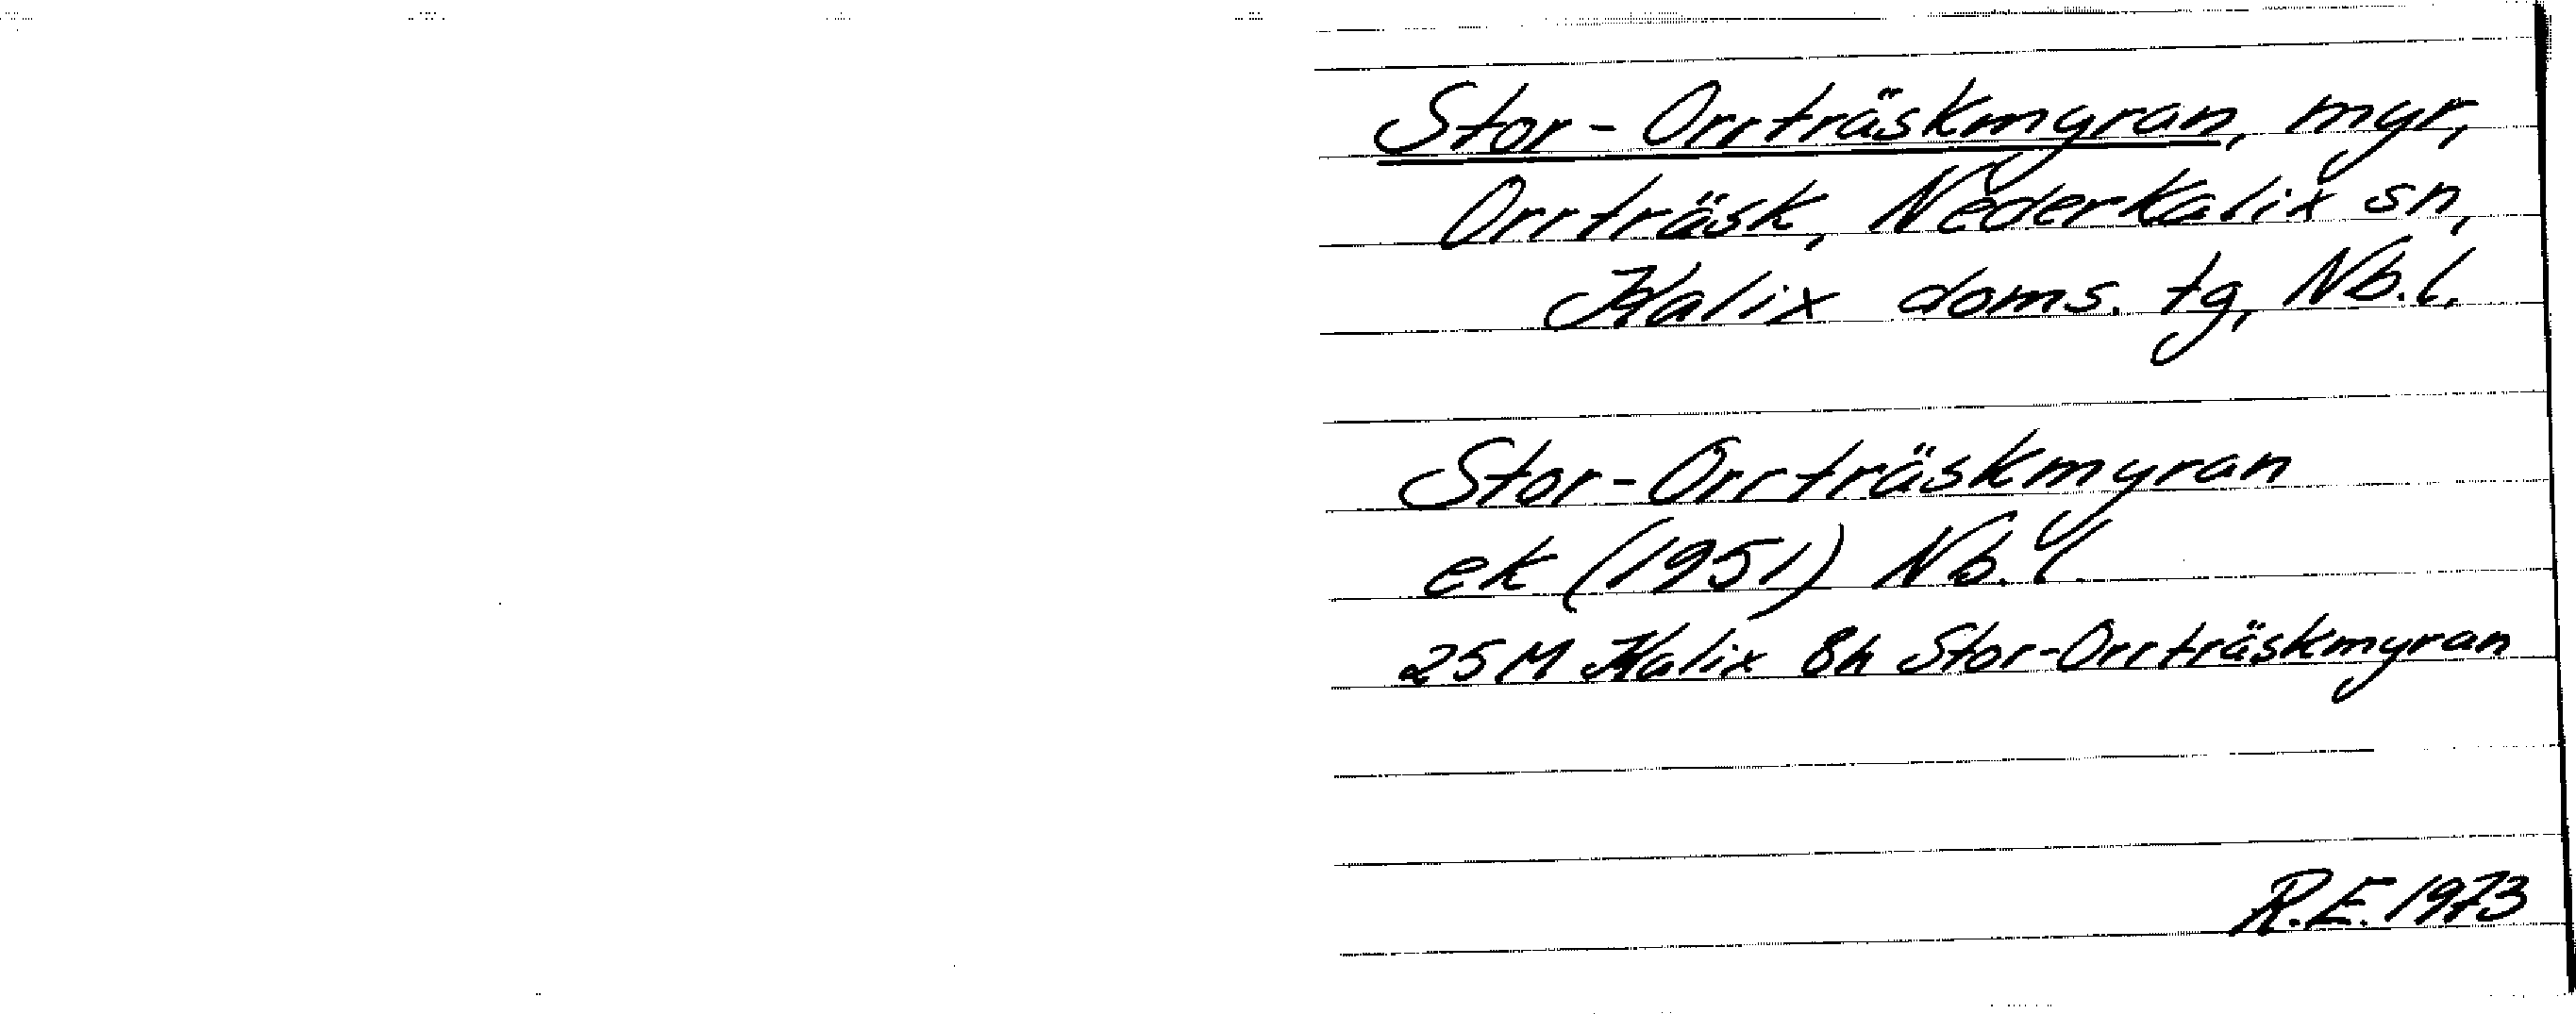 Stor-Orrträskmyran, myr,
Orrträsk, Nederkalix sn,
Kalix doms. tg, Nb.l.
Stor-Orrträskmyran
ek (1951) Nb.l.
25M Kalix 8h Stor-Orrträskmyran
R.E. 1973